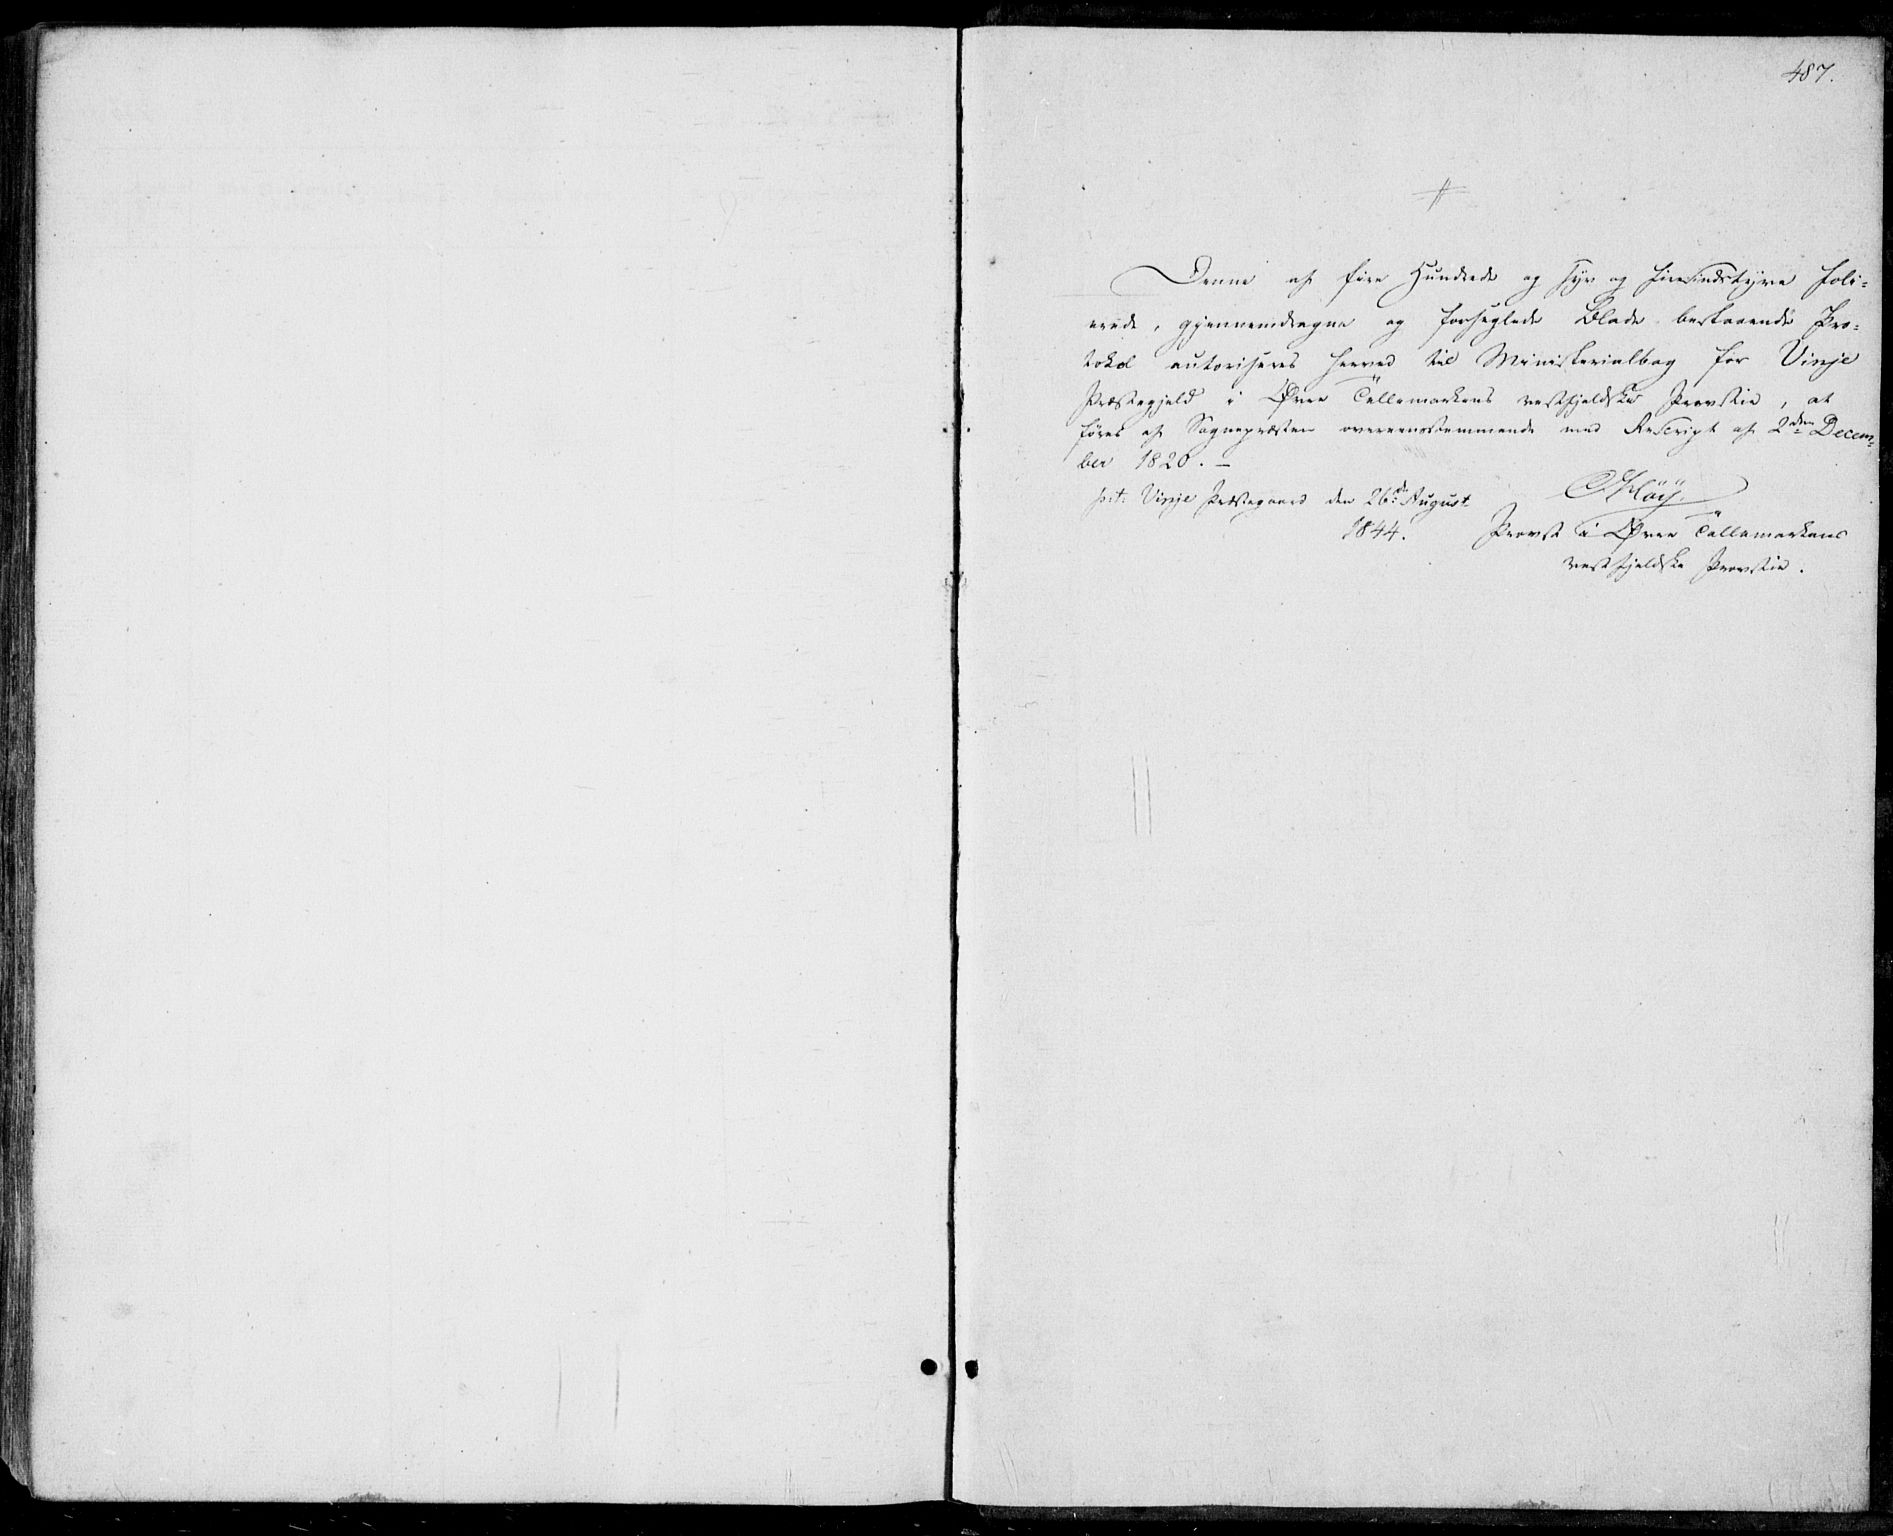 487.
Denne af fire Hundrede og syv og fiirsindstyve foli=
erede, gjennemdragne og forseglede Blade bestaaende Pro=
tokol autoriseres herved til Ministerialbog for Vinje
Præstegjeld i Øvre Tellemarkens vestfjeldske Provstie, at
føres af Sognepræsten overeensstemmende med Rescript af 2den Decem=
ber 1820. —
p.t. Vinje Præstegaard den 26de August
1844.
Provst i Øvre Tellemarkens
vestfjeldske Provstie.